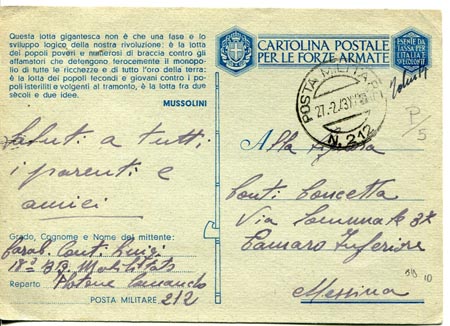 Questa lotta gigantesca non è che una fase e lo
sviluppo logico della nostra rivoluzione: è la lotta
dei popoli poveri e numerosi di braccia contro gli
affamatori che detengono ferocemente il monopo-
lio di tutte le ricchezze e di tutto l'oro della terra: è
la lotta dei popoli fecondi e giovani contro i po-
poli isteriliti e volgenti al tramonto, è la lotta fra due
secoli e due idee.
MUSSOLINI
CARTOLINA POSTALE
PER LE FORZE ARMATE
ESENTE DA
TASSA PER
L'ITALIA E
POSTA MILITARE
27.2.43
N. 212
P/5
Saluti a tutti
i parenti e
amici
Alla
Conti Concetta
Via Comunale 37
Camaro Inferiore
Messina
10
Grado, Cognome e Nome del mittente:
Conti Luigi
18°
Reparto Plotone Comando
POSTA MILITARE 212